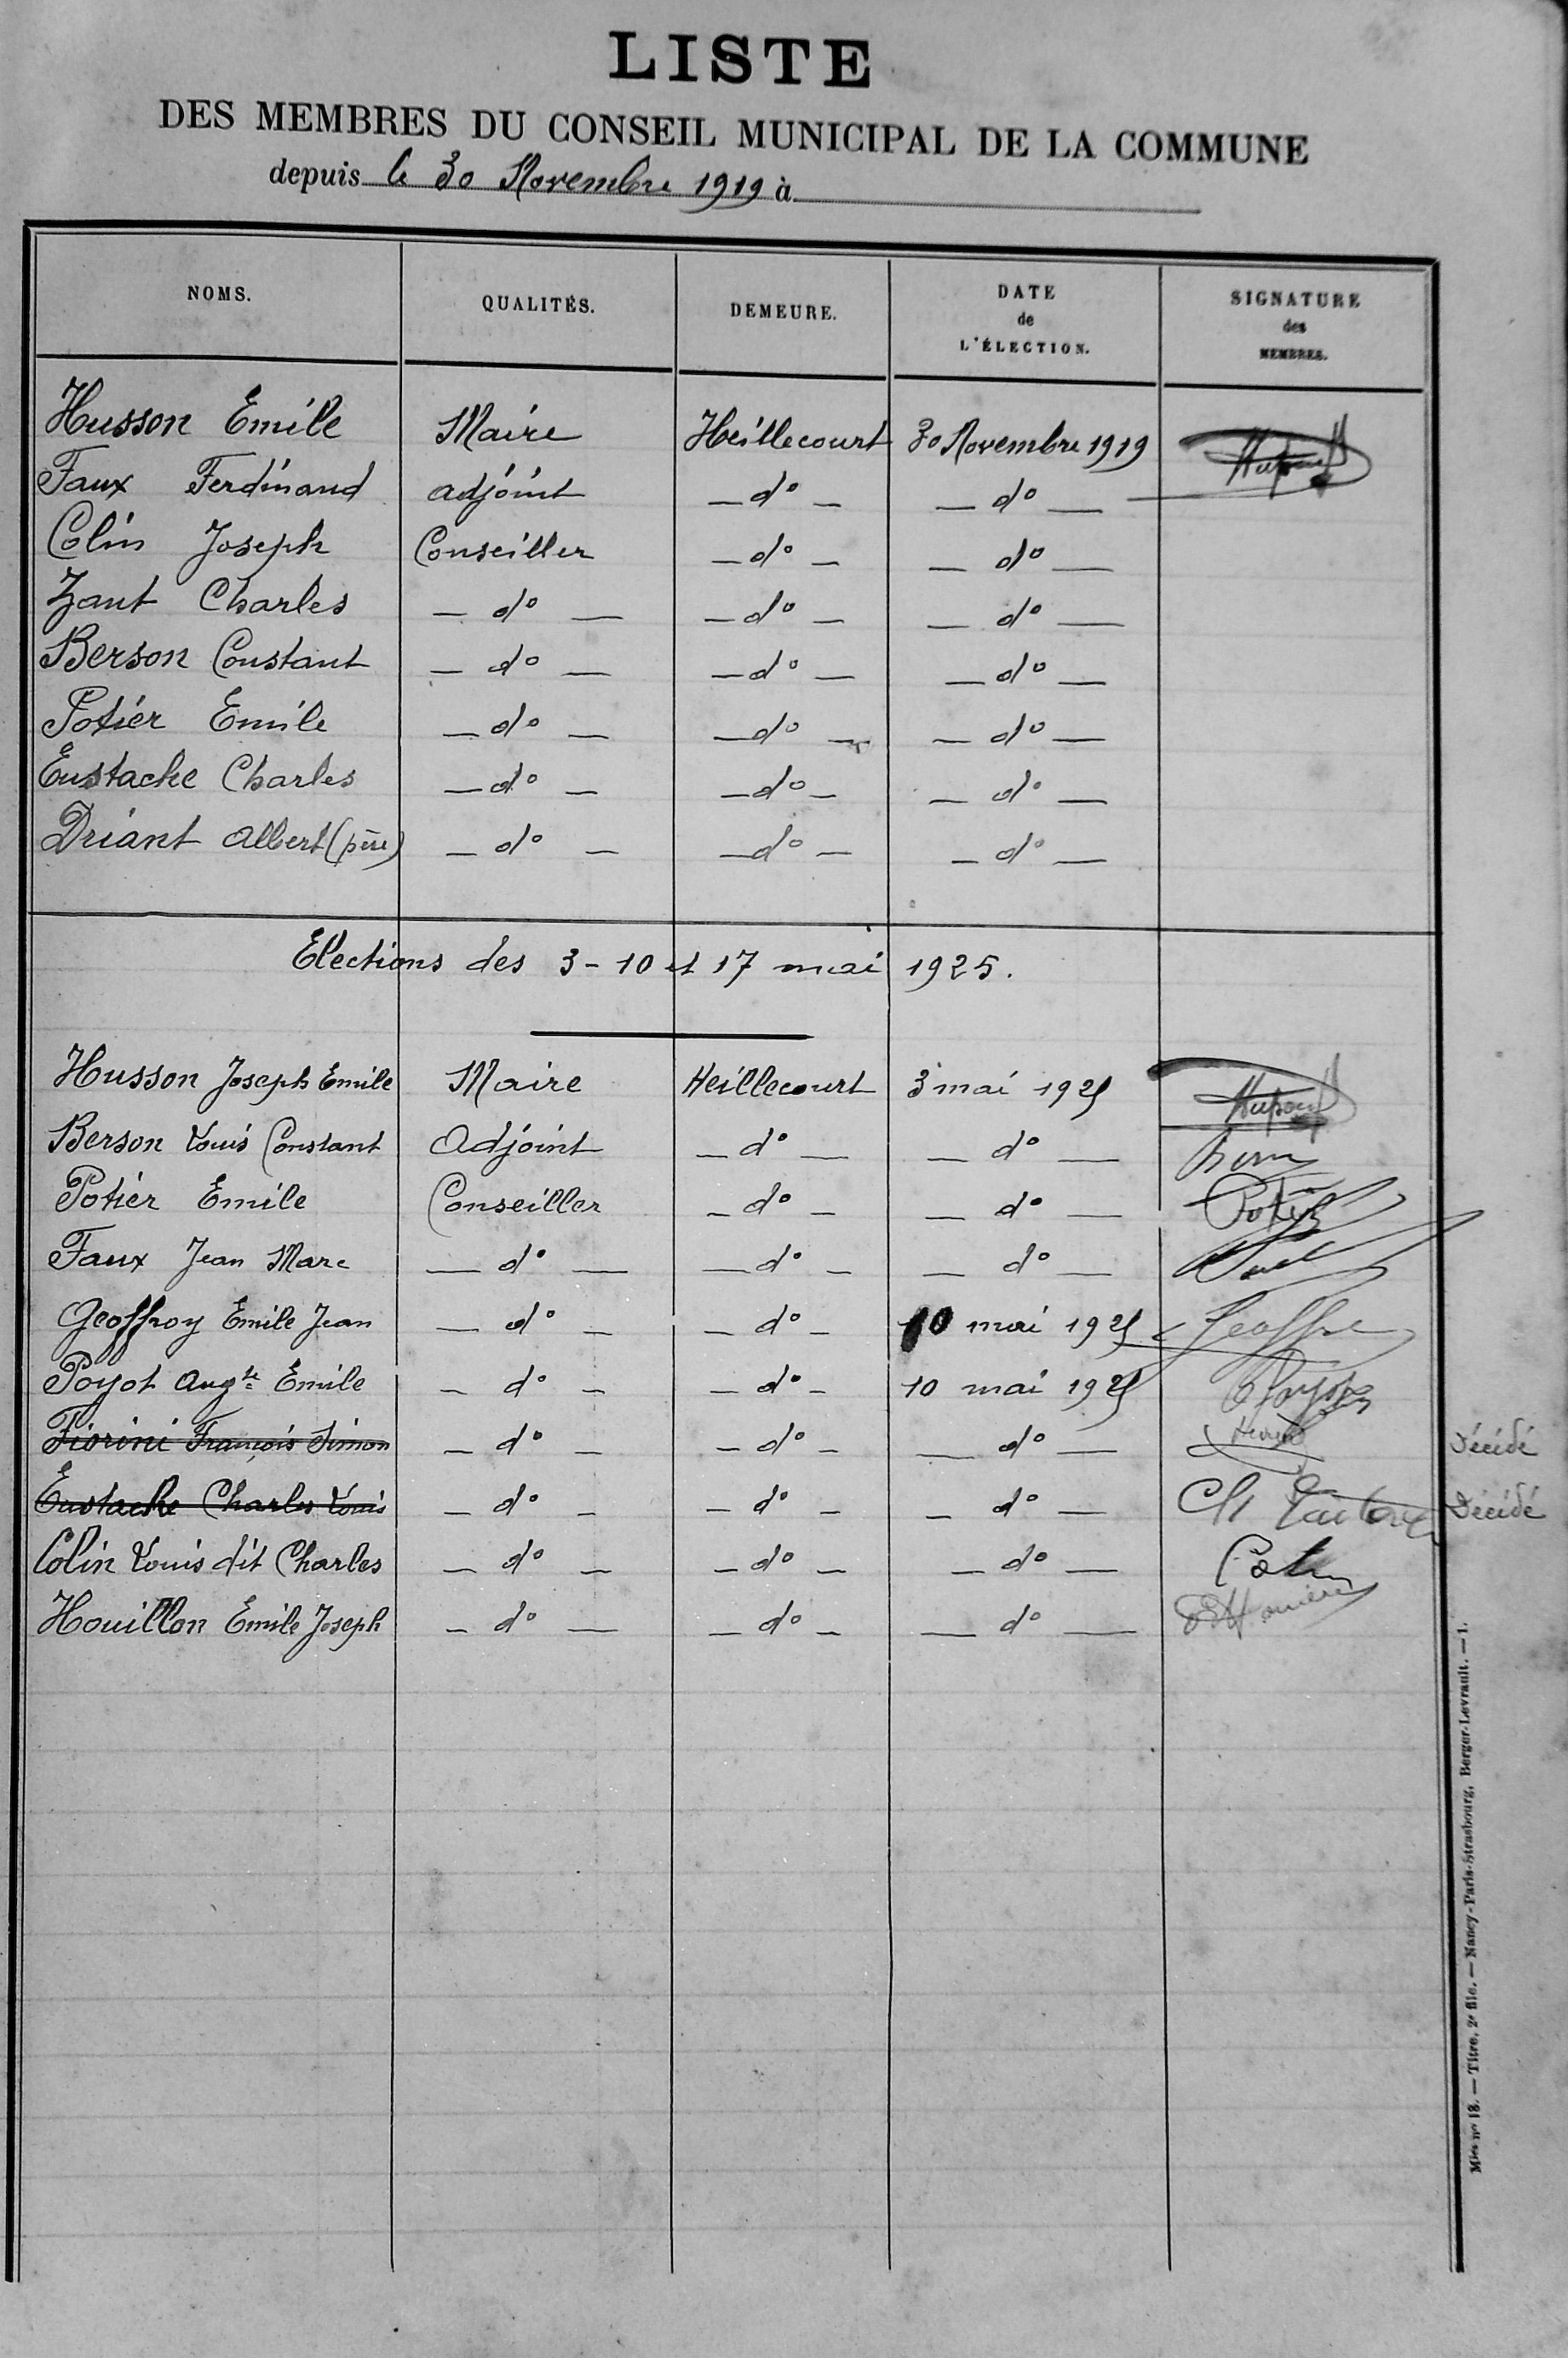 LISTE
DES MEMBRES DU CONSEIL MUNICIPAL DE LA COMMUNE
depuis le 30 Novembre 1919 à
NOMS. QUALITÉS. DEMEURE. DATE de L'ÉLECTION. SIGNATURE des MEMBRES.
Husson Emile Maire Heillecourt 30 Novembre 1919
Faux Ferdinand adjoint — d° — — d° —
Colin Joseph Conseiller — d° — — d° —
Zant Charles — d° — — d° — — d° —
Berson Constant — d° — — d° — — d° —
Potier Emile — d° — — d° — — d° —
Eustache Charles — d° — — d° — — d° —
Driant Albert (père) — d° — — d° — — d° —
Elections des 3 - 10 et 17 mai 1925.
Husson Joseph Emile Maire Heillecourt 3 mai 1925
Berson Louis Constant Adjoint — d° — — d° —
Potier Emile Conseiller — d° — — d° — Potier
Faux Jean Marc — d° — — d° — — d° —
Geoffroy Emile Jean — d° — — d° — 10 mai 1925
Poyot Aug.te Emile — d° — — d° — 10 mai 1925
Fiorini François Simon — d° — — d° — — d° — Décédé
Eustache Charles Louis — d° — — d° — — d° — Décédé
Colin Louis dit Charles — d° — — d° — — d° — Colin
Houillon Emile Joseph — d° — — d° — — d° —
Mies n° 18. — Titre, 2e file. — Nancy-Paris-Strasbourg, Berger-Levrault. — 1.